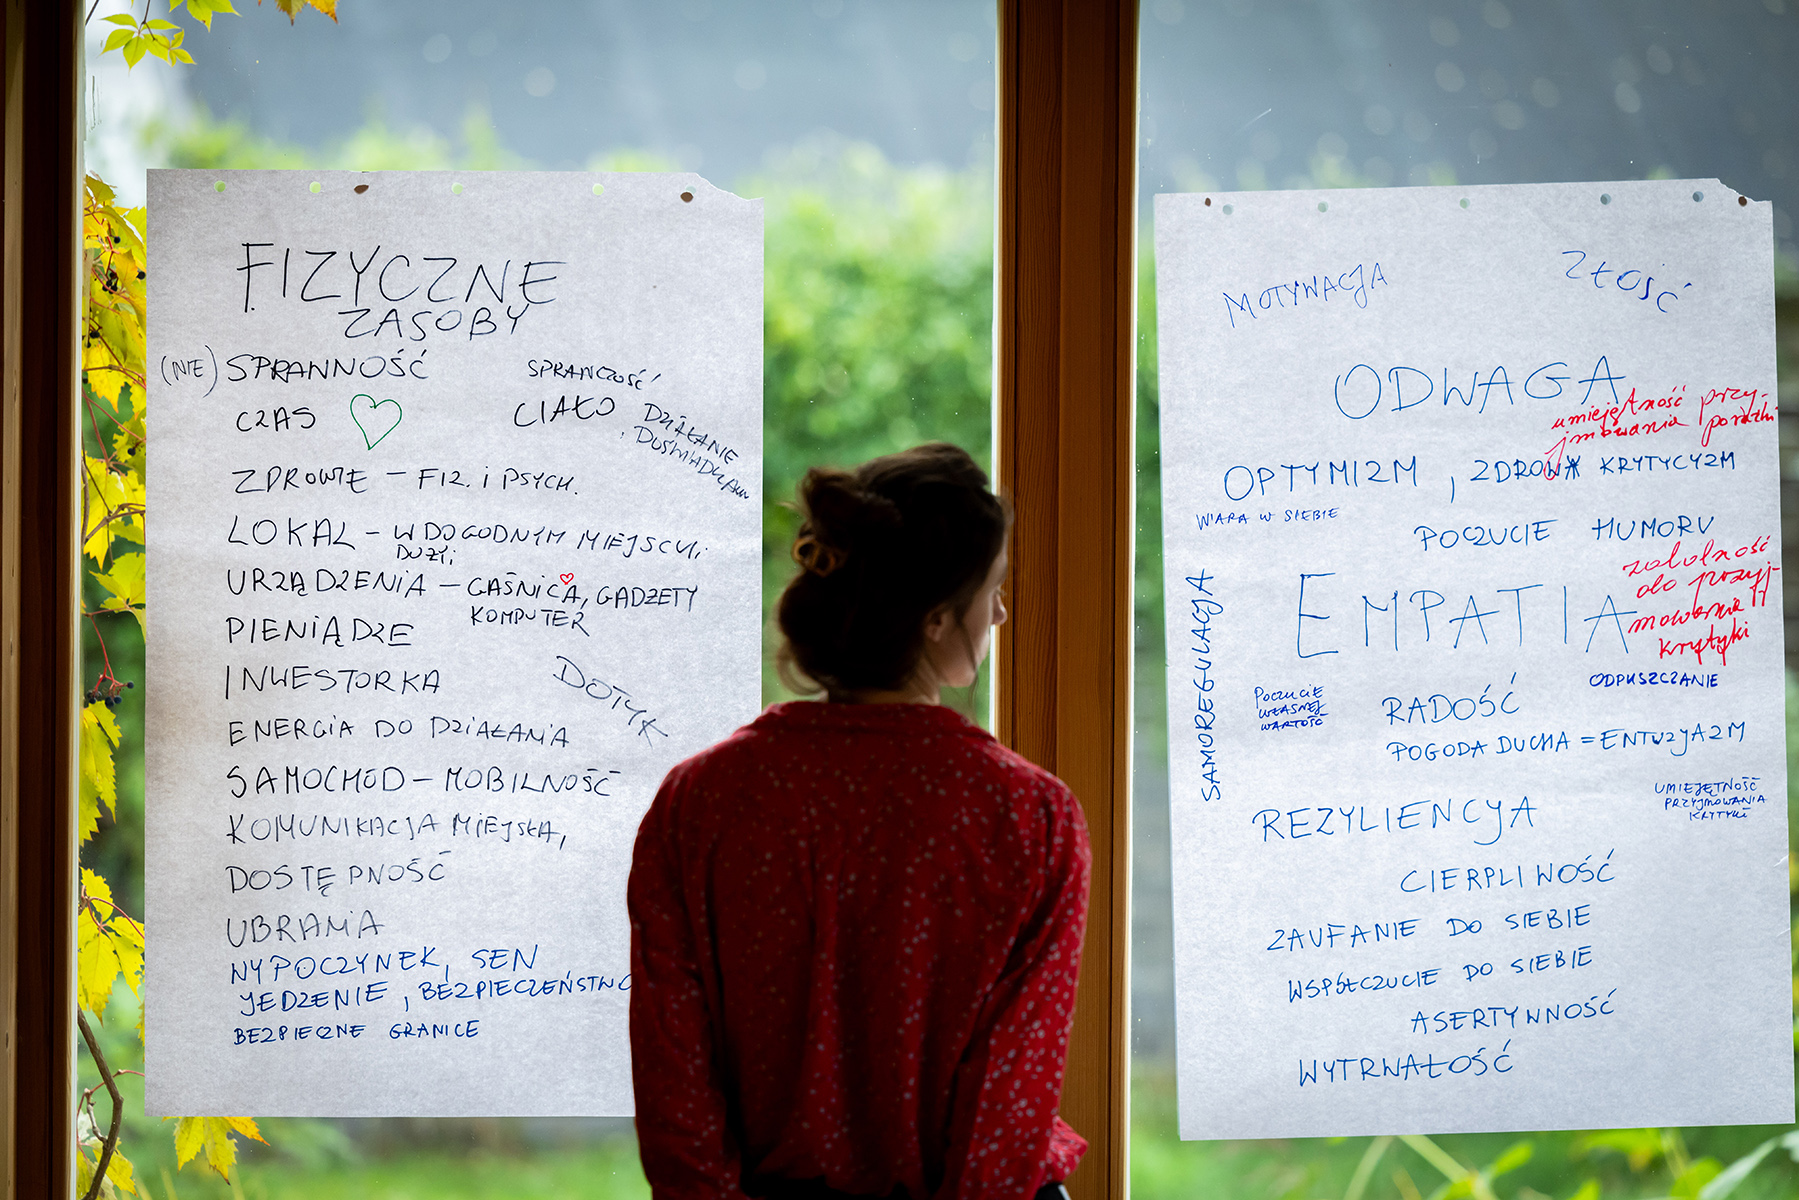 FIZYCZNE
ZASOBY
(NIE) SPRAWNOŚĆ
SPRAWCZOŚĆ
CZAS
CIAŁO
DZIAŁANIE
ZDROWIE – FIZ. I PSYCH.
LOKAL – W DOGODNYM MIEJSCU
DUŻY
URZĄDZENIA – GAŚNICA, GADŻETY
KOMPUTER
PIENIĄDZE
INWESTORKA
DOTYK
ENERGIA DO DZIAŁANIA
SAMOCHÓD – MOBILNOŚĆ
KOMUNIKACJA MIEJSKA,
DOSTĘPNOŚĆ
UBRANIA
WYPOCZYNEK, SEN
JEDZENIE, BEZPIECZEŃSTWO
BEZPIECZNE GRANICE
MOTYWACJA
ZŁOŚĆ
ODWAGA
umiejętność przy-
jmowania porażki
OPTYMIZM, ZDROWY KRYTYCYZM
WIARA W SIEBIE
POCZUCIE HUMORU
zdolność
do przyj-
mowania
krytyki
EMPATIA
SAMOREGULACJA
ODPUSZCZANIE
POCZUCIE
WŁASNEJ
WARTOŚĆ
RADOŚĆ
POGODA DUCHA = ENTUZJAZM
UMIEJĘTNOŚĆ
PRZYJMOWANIA
KRYTYKI
REZYLIENCJA
CIERPLIWOŚĆ
ZAUFANIE DO SIEBIE
WSPÓŁCZUCIE DO SIEBIE
ASERTYWNOŚĆ
WYTRWAŁOŚĆ